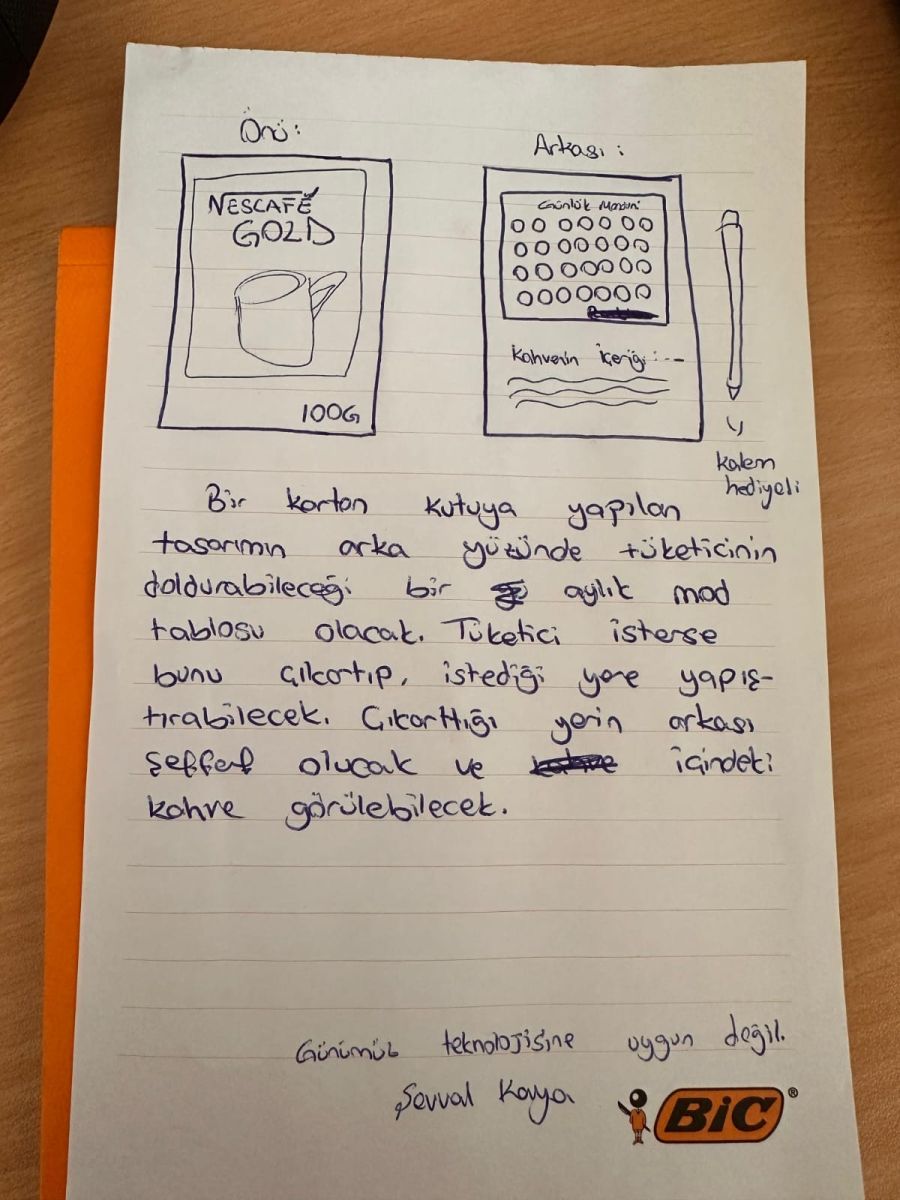 Önü:
Arkası:
NESCAFĒ
GOLD
100G
Günlük Modun:
Kahvenin İçeriği:---
kalem
hediyeli
Bir karton kutuya yapılan
tasarımın arka yüzünde tüketicinin
doldurabileceği bir aylık mod
tablosu olacak. Tüketici isterse
bunu çıkartıp, istediği yere yapış-
tırabilecek. Çıkarttığı yerin arkası
şeffaf olucak ve içindeki
kahve görülebilecek.
Günümüz teknolojisine uygun değil.
Şevval Kaya
BiC®